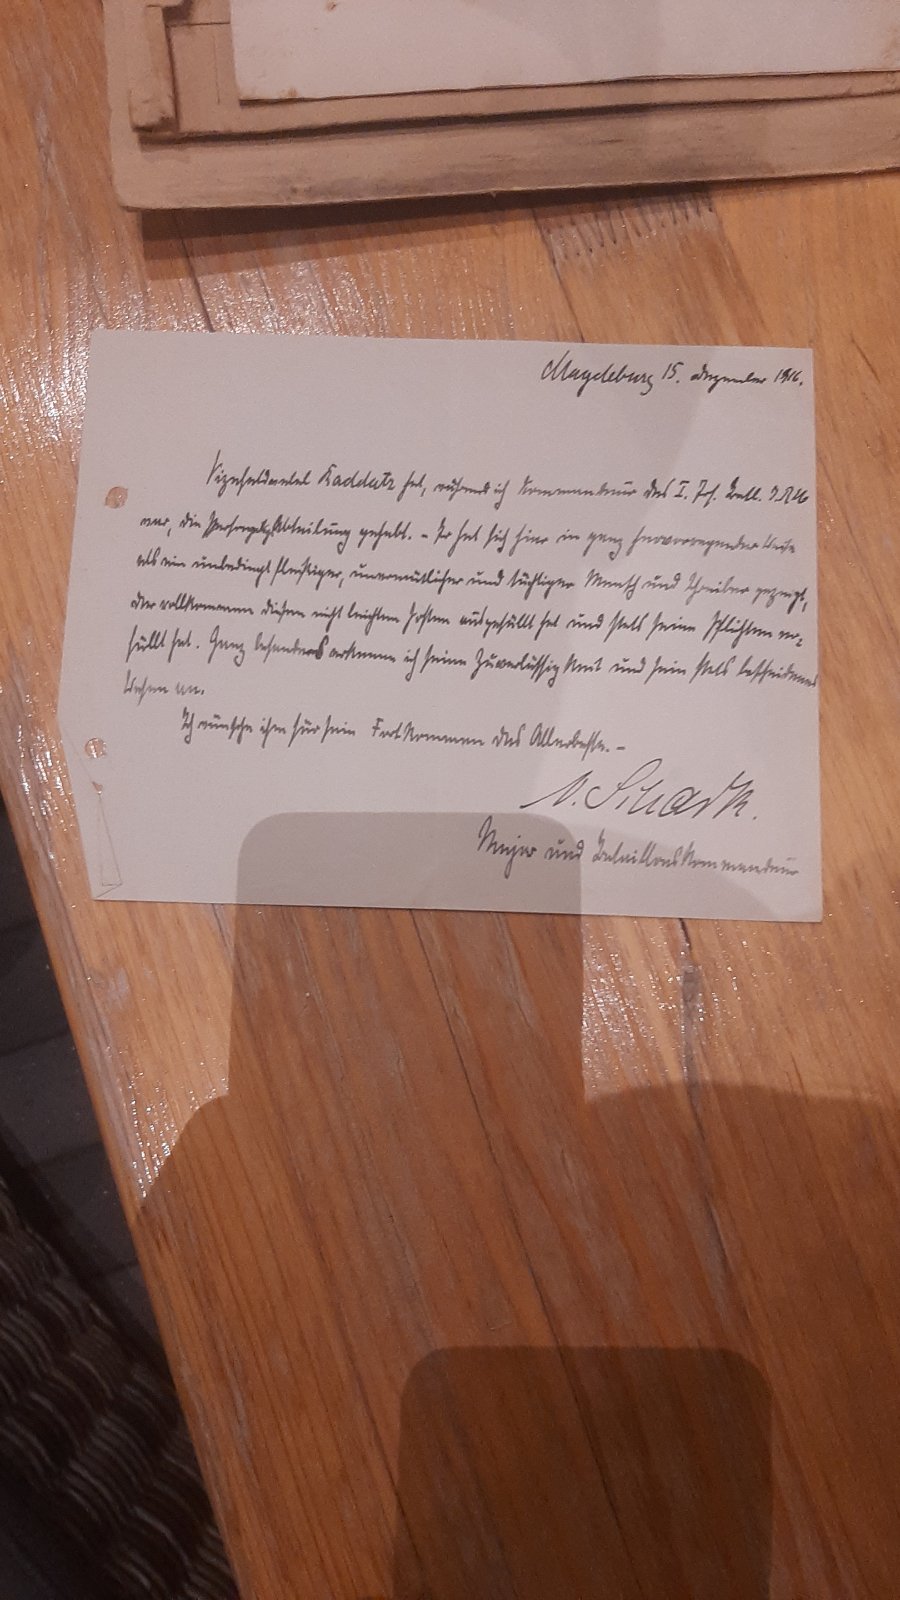 Magdeburg 15. Dezember 1916.
Vizefeldwebel Kaddatz hat, während ich Kommandeur des I. Ers. Batl.
war, die Abteilung gehabt. – Er hat sich hier in ganz hervorragender Weise
als ein unbedingt fleißiger, unermüdlicher und tüchtiger Mensch und Schreiber gezeigt,
der vollkommen diesen nicht leichten Posten ausgefüllt hat und stets seine Pflichten er-
füllt hat. Ganz besonders erkenne ich seine Zuverlässigkeit und sein stets bescheidenes
Wesen an.
Ich wünsche ihm für sein Fortkommen das Allerbeste. –
v. Schack.
Major und Bataillonskommandeur